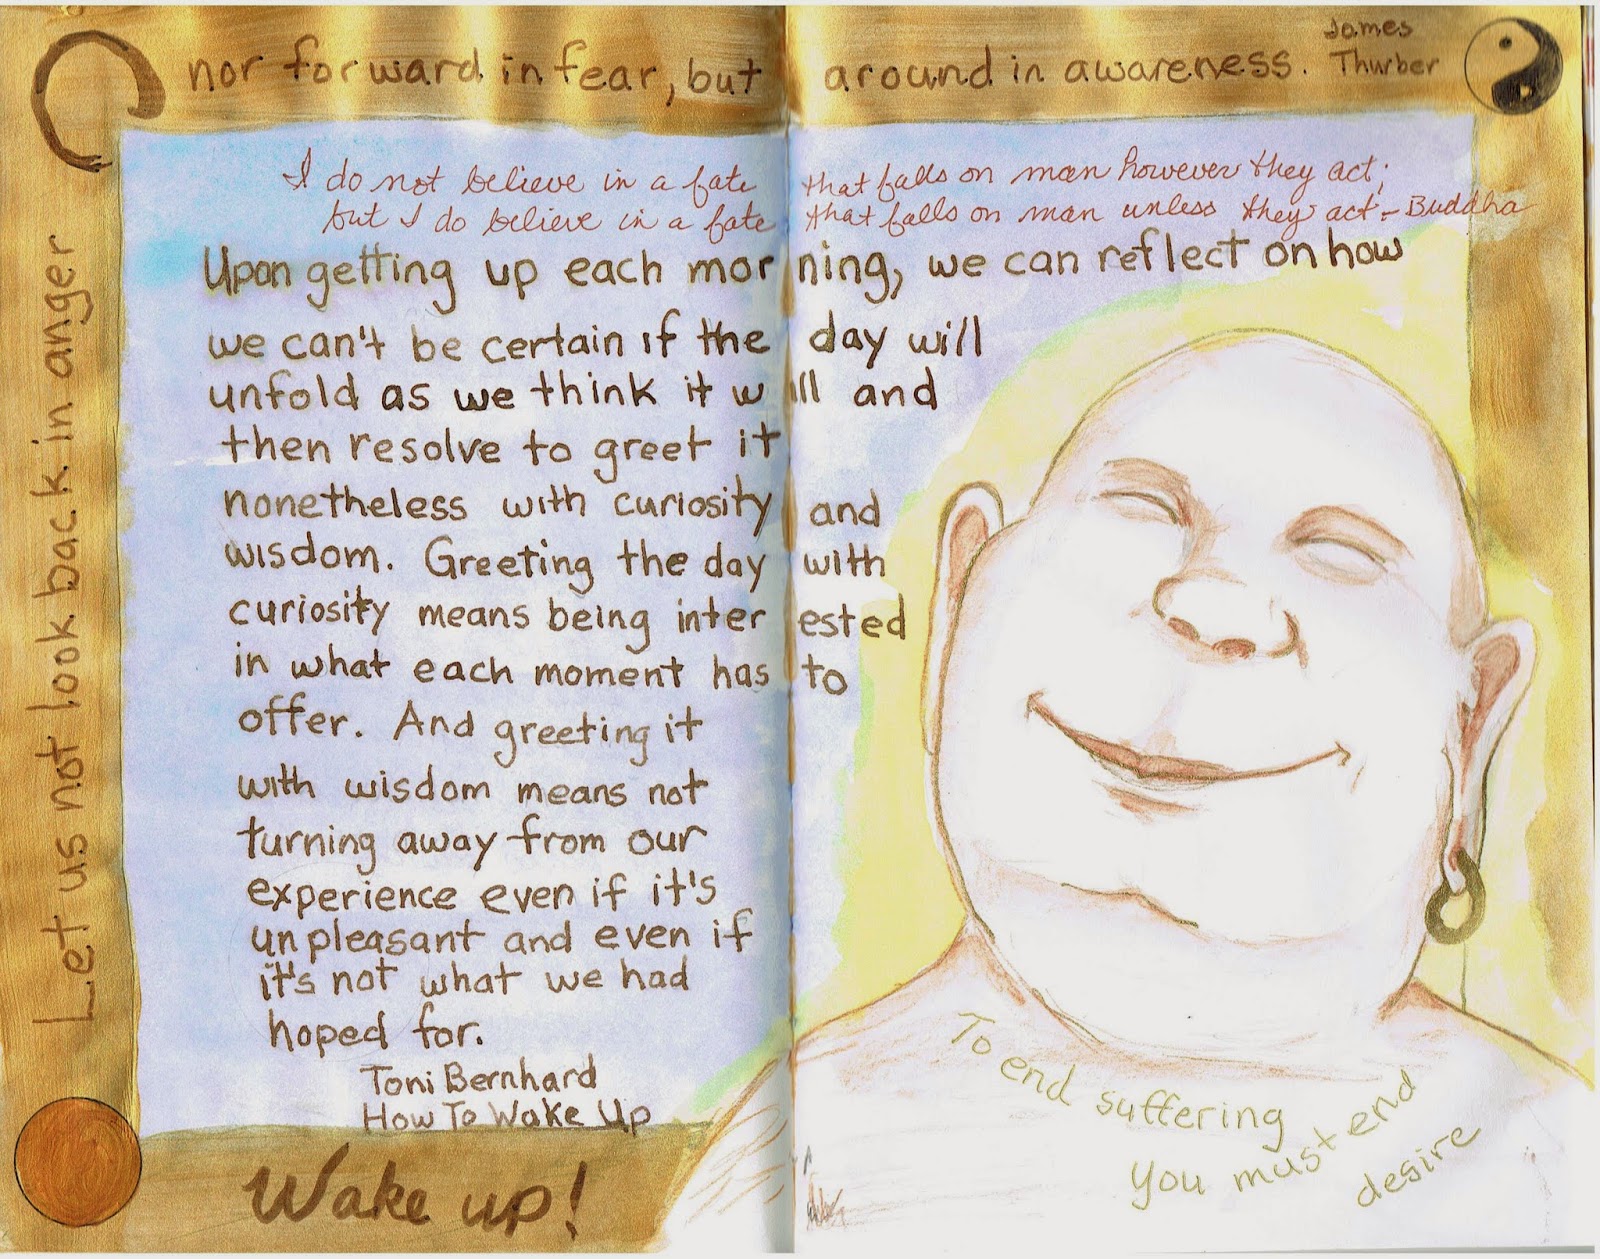 Let us not look back in anger
nor forward in fear, but around in awareness. James
Thurber
I do not believe in a fate that falls on man however they act;
but I do believe in a fate that falls on man unless they act - Buddha
Upon getting up each morning, we can reflect on how
we can't be certain if the day will
unfold as we think it will and
then resolve to greet it
nonetheless with curiosity and
wisdom. Greeting the day with
curiosity means being interested
in what each moment has to
offer. And greeting it
with wisdom means not
turning away from our
experience even if it's
unpleasant and even if
it's not what we had
hoped for.
Toni Bernhard
How To Wake Up
Wake up!
To end suffering
you must end
desire